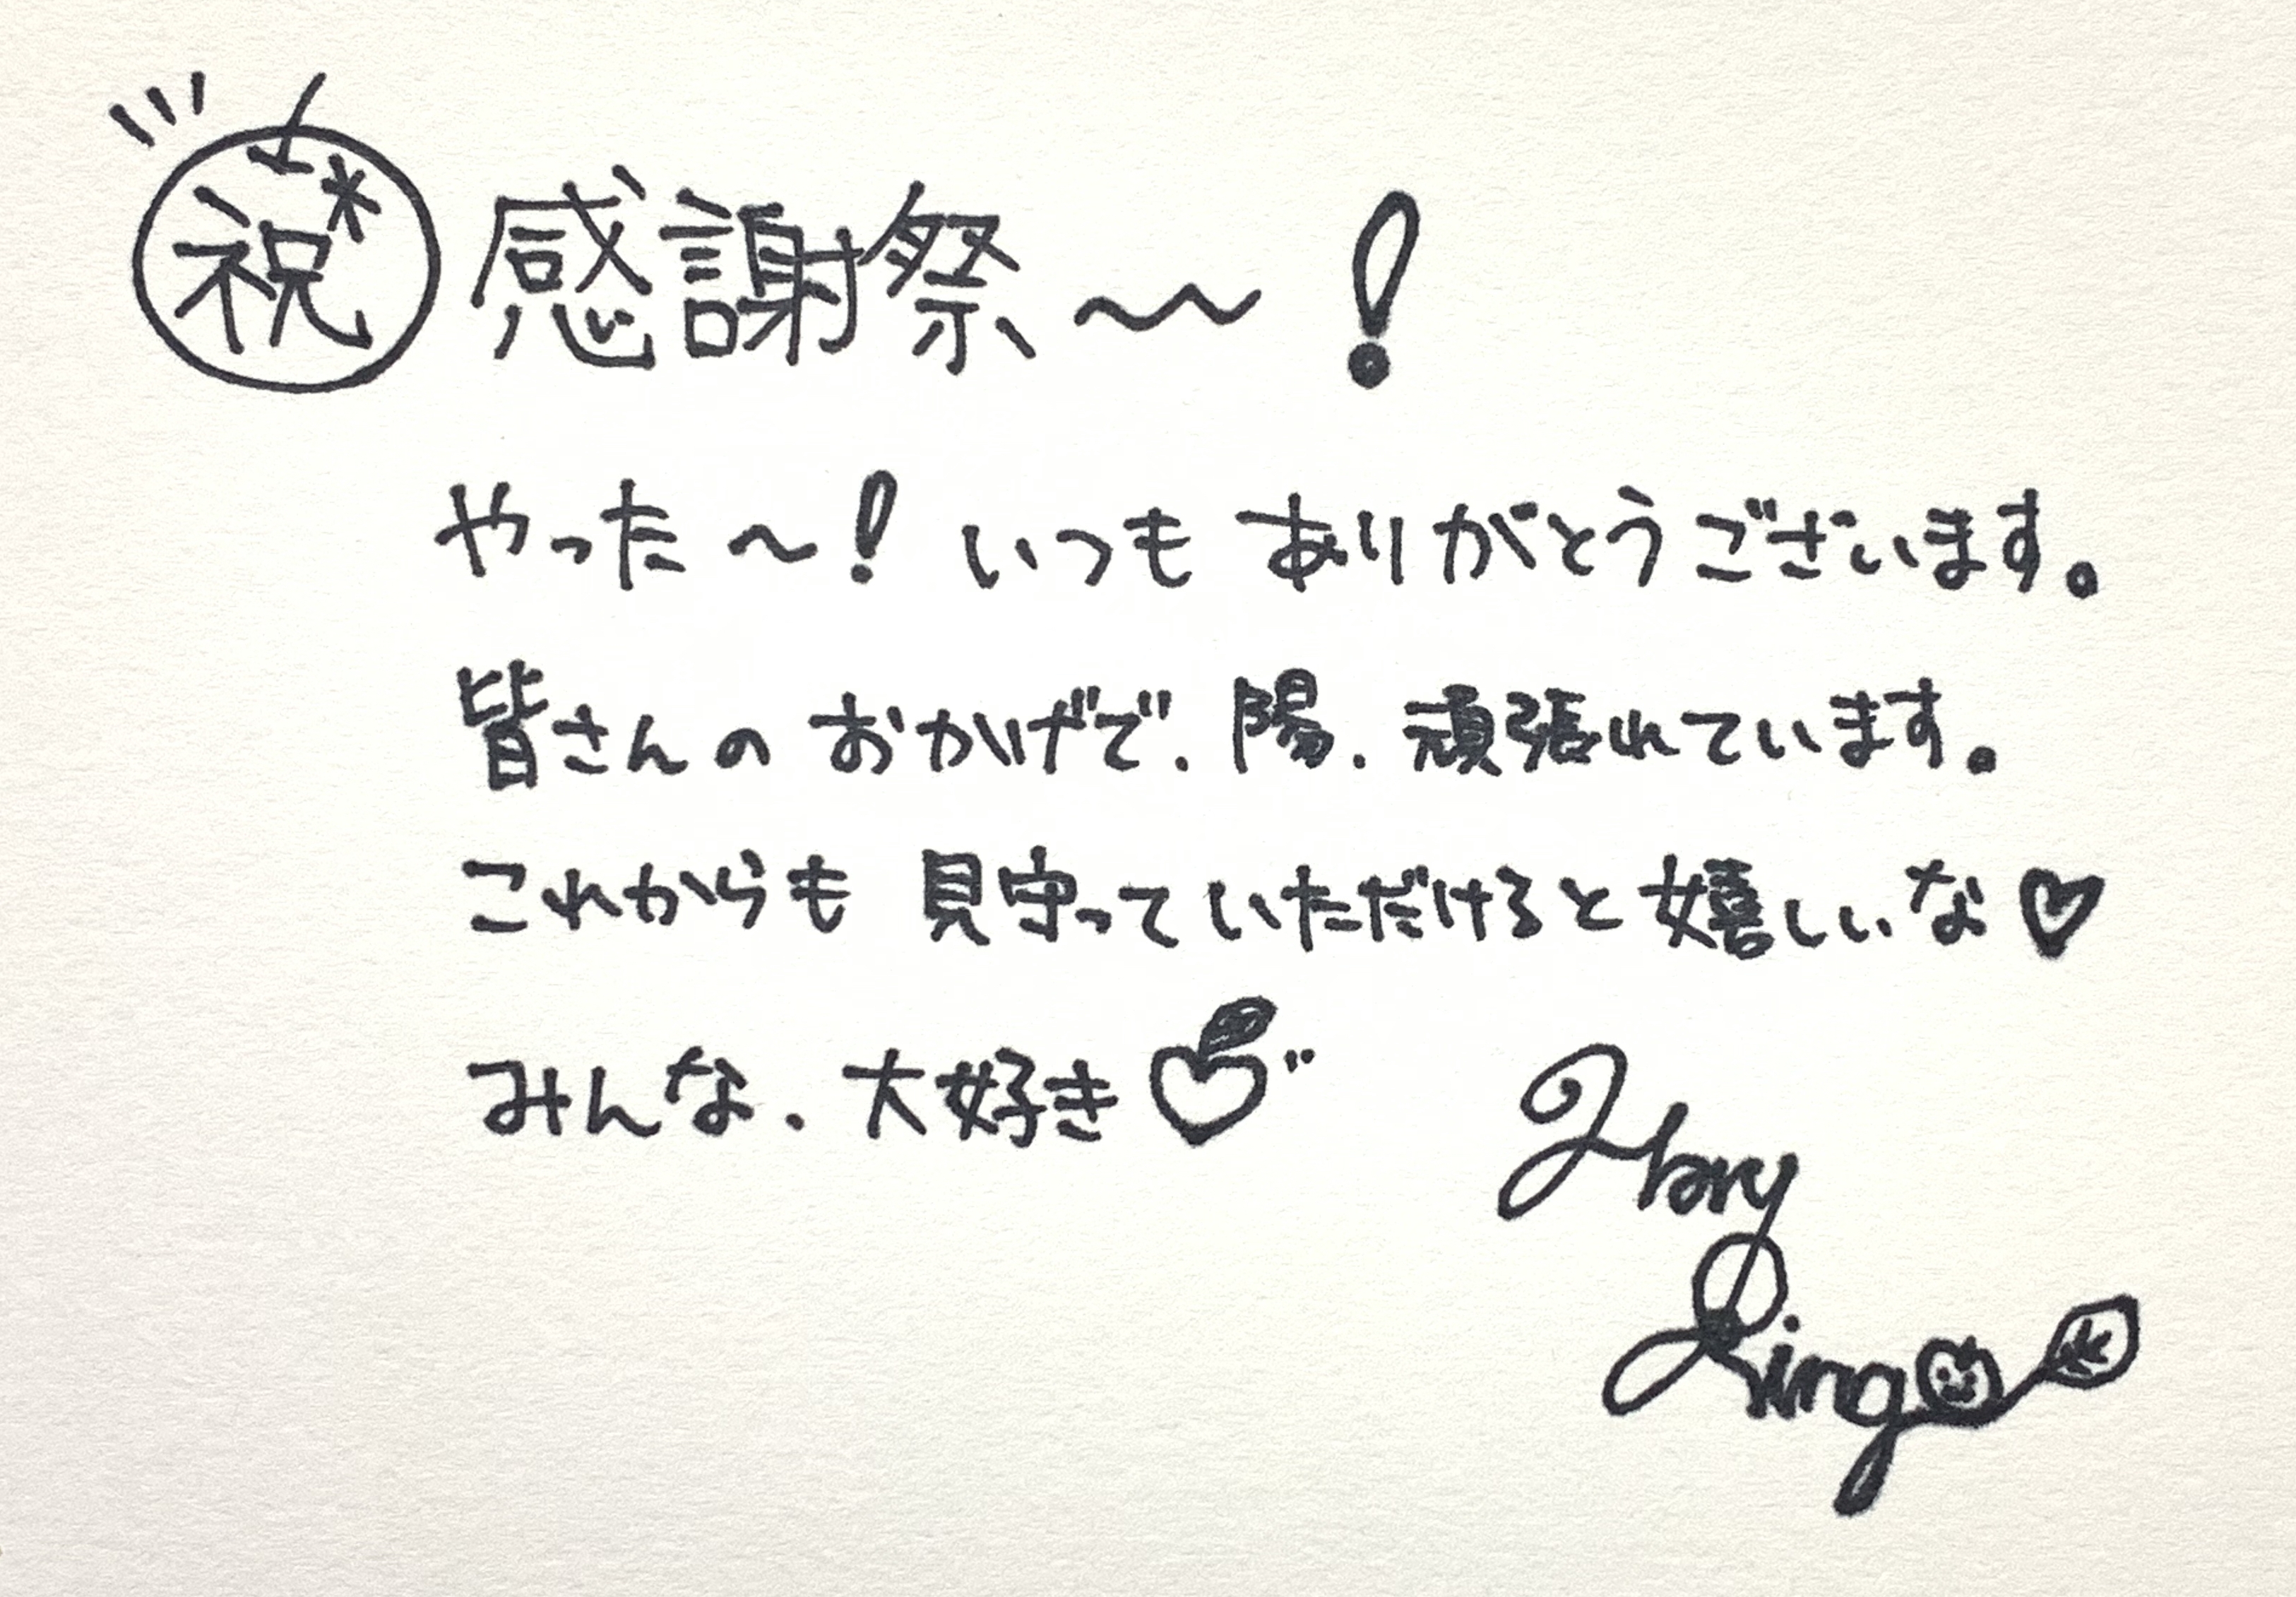 祝 感謝祭〜！
やった〜！いつもありがとうございます。
皆さんのおかげで、陽、頑張れています。
これからも見守っていただけると嬉しいな♡
みんな、大好き♡
Hary
Ringo